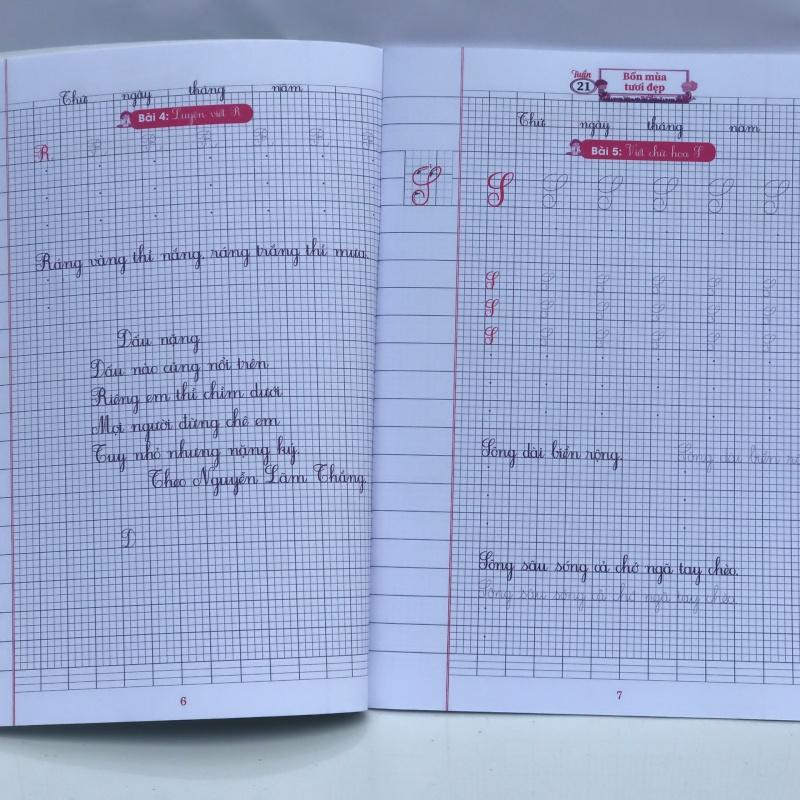 Thứ ngày tháng năm
Bài 4: Luyện viết R
R R R R R R R
Ráng vàng thì nắng, ráng trắng thì mưa.
Dấu nặng
Dấu nào cũng nổi trên
Riêng em thì chìm dưới
Mọi người đừng chê em
Tuy nhỏ nhưng nặng ký.
Theo Nguyễn Lãm Thắng
D
6
Tuần 21
Bốn mùa tươi đẹp
Thứ ngày tháng năm
Bài 5: Viết chữ hoa S
S
S S S S S S
S S S S S S
S S S S S S
S S S S S S
Sông dài biển rộng. Sông dài biển
Sông sâu sóng cả chớ ngã tay chèo.
Sông sâu sóng cả chớ ngã tay chèo.
7